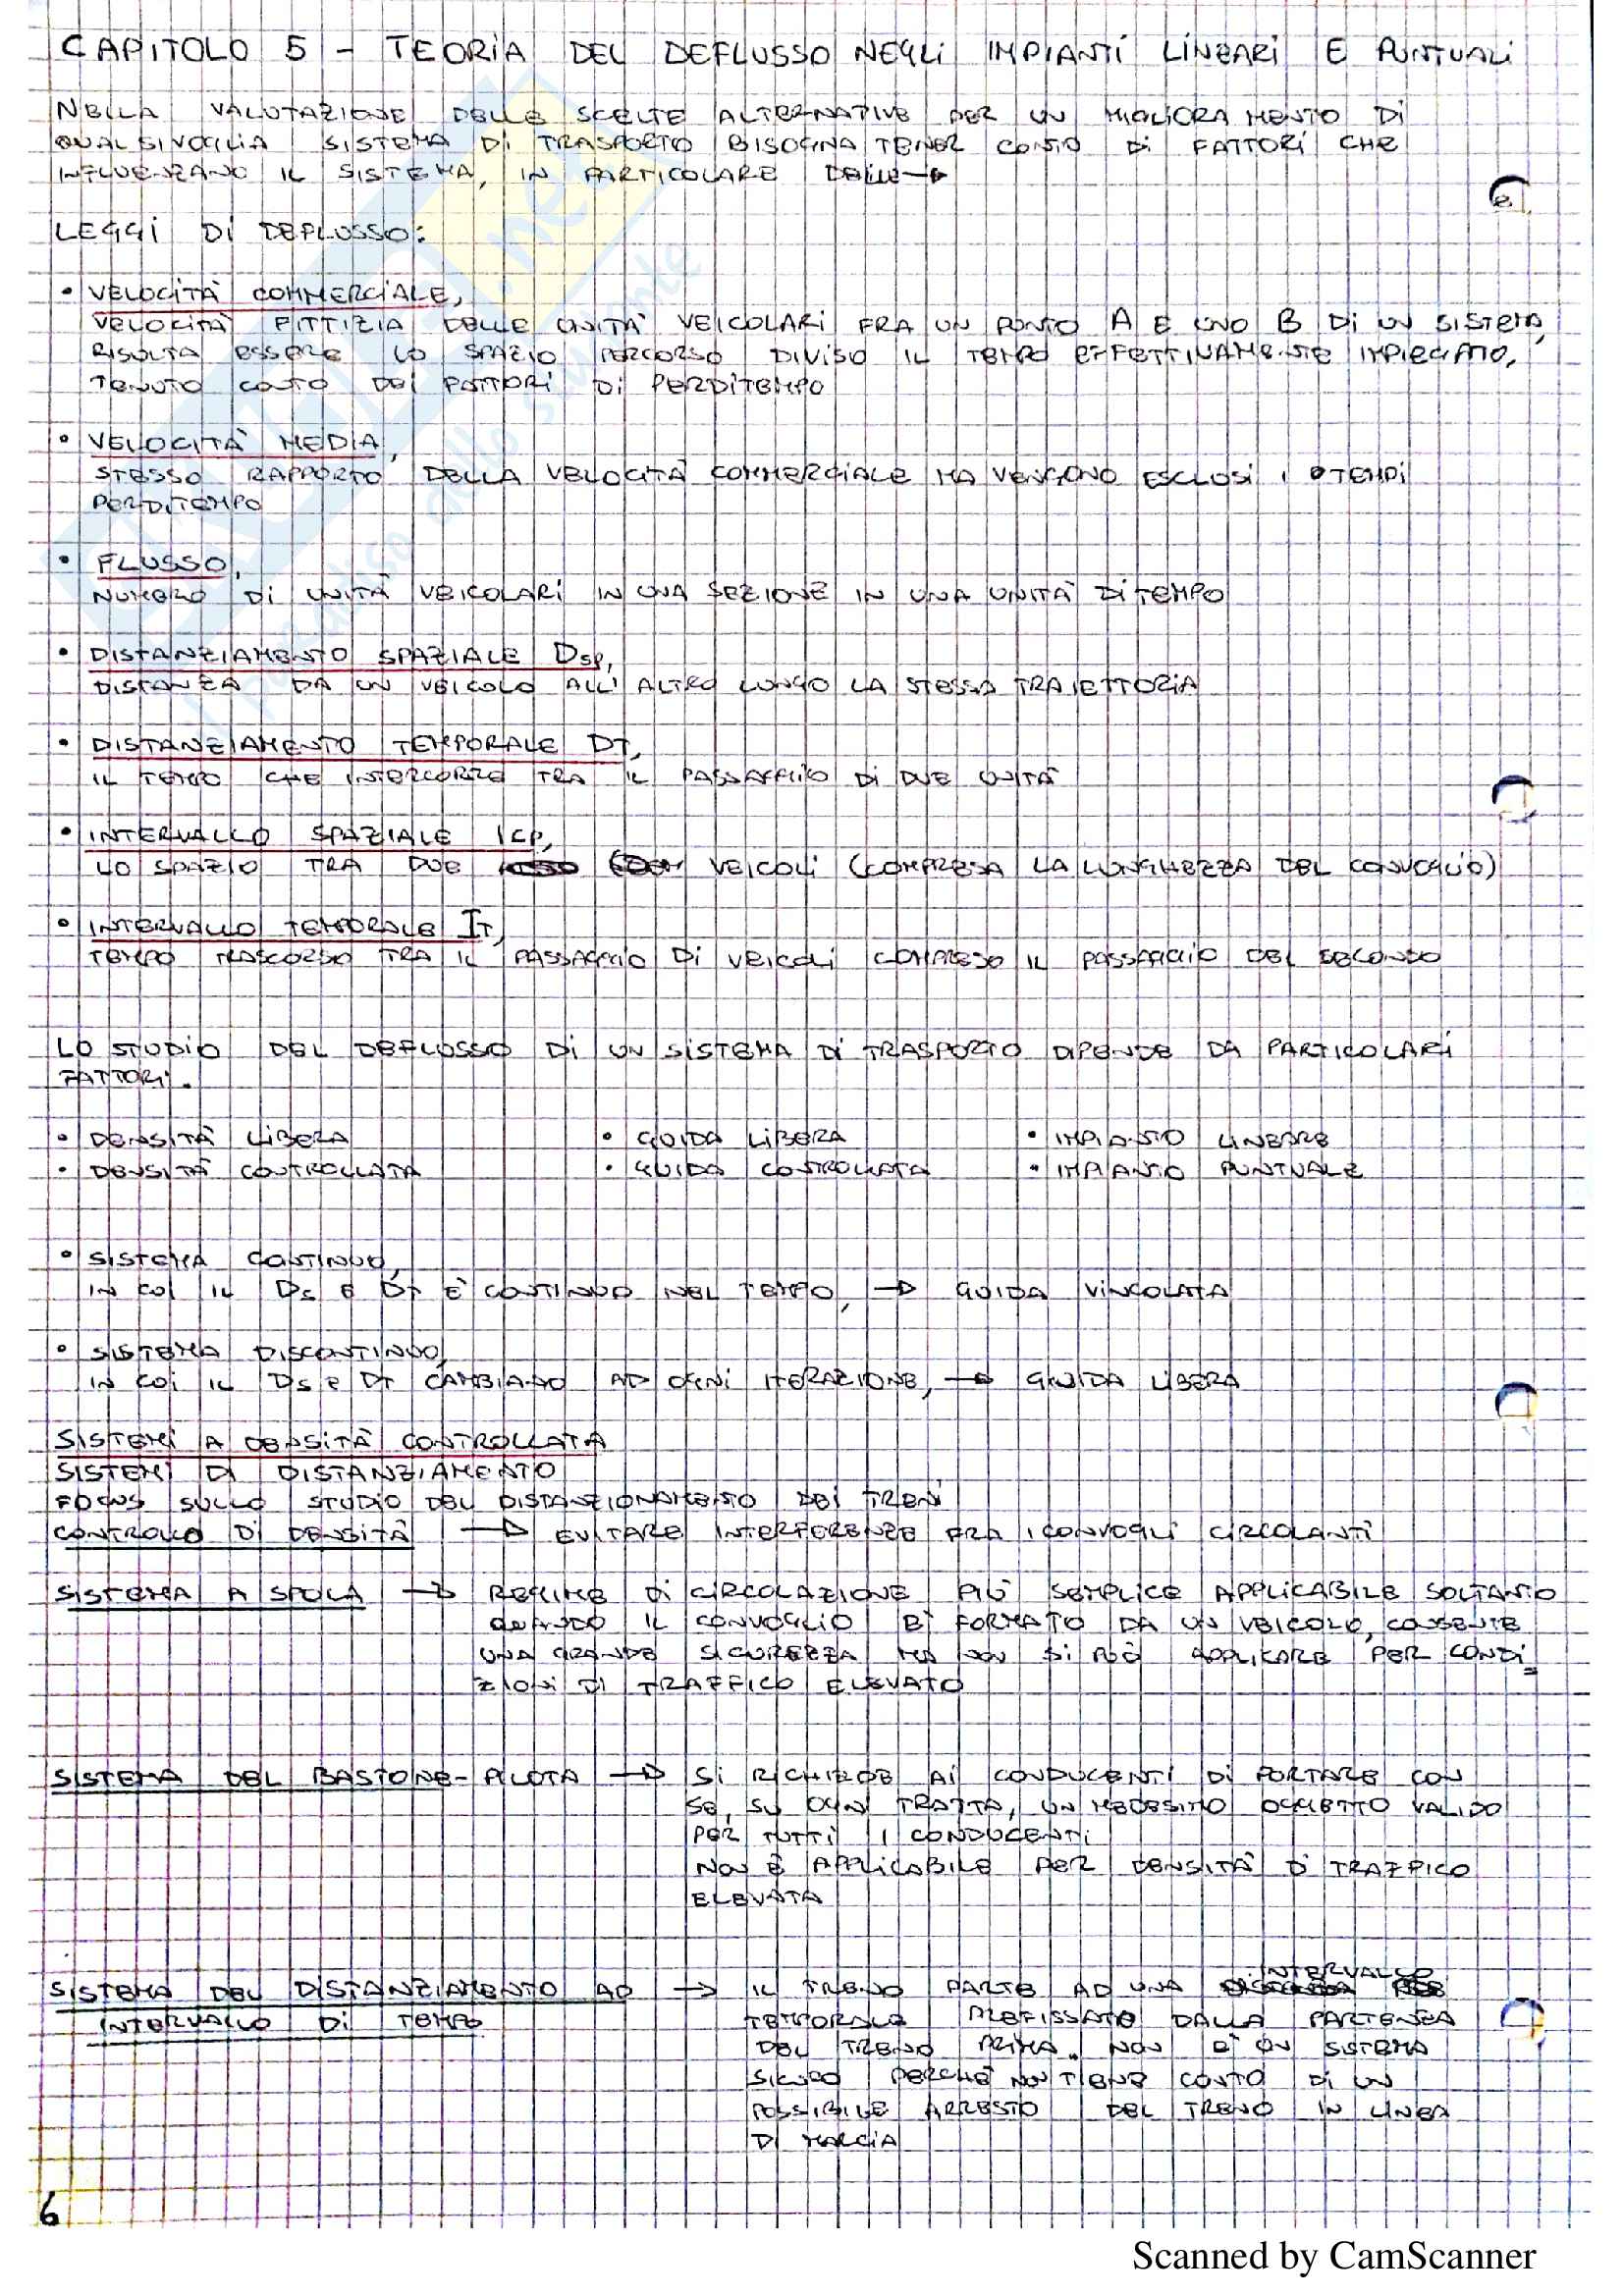 CAPITOLO 5 - TEORIA DEL DEFLUSSO NEGLI IMPIANTI LINEARI E PUNTUALI
NELLA VALUTAZIONE DELLE SCELTE ALTERNATIVE PER UN MIGLIORAMENTO DI
QUALSIVOGLIA SISTEMA DI TRASPORTO BISOGNA TENER CONTO DI FATTORI CHE
INFLUENZANO IL SISTEMA, IN PARTICOLARE DELLE →
LEGGI DI DEFLUSSO:
• VELOCITÀ COMMERCIALE,
VELOCITÀ FITTIZIA DELLE UNITÀ VEICOLARI FRA UN PUNTO A E UNO B DI UN SISTEMA,
RISULTA ESSERE LO SPAZIO PERCORSO DIVISO IL TEMPO EFFETTIVAMENTE IMPIEGATO,
TENUTO CONTO DEI FATTORI DI PERDITEMPO
• VELOCITÀ MEDIA,
STESSO RAPPORTO DELLA VELOCITÀ COMMERCIALE MA VENGONO ESCLUSI I TEMPI
PERDITEMPO
• FLUSSO,
NUMERO DI UNITÀ VEICOLARI IN UNA SEZIONE IN UNA UNITÀ DI TEMPO
• DISTANZIAMENTO SPAZIALE Dsp,
DISTANZA DA UN VEICOLO ALL'ALTRO LUNGO LA STESSA TRAIETTORIA
• DISTANZIAMENTO TEMPORALE DT,
IL TEMPO CHE INTERCORRE TRA IL PASSAGGIO DI DUE UNITÀ
• INTERVALLO SPAZIALE ICP,
LO SPAZIO TRA DUE VEICOLI (COMPRESA LA LUNGHEZZA DEL CONVOGLIO)
• INTERVALLO TEMPORALE IT,
TEMPO TRASCORSO TRA IL PASSAGGIO DI VEICOLI COMPRESO IL PASSAGGIO DEL SECONDO
LO STUDIO DEL DEFLUSSO DI UN SISTEMA DI TRASPORTO DIPENDE DA PARTICOLARI
FATTORI.
• DENSITÀ LIBERA • GUIDA LIBERA • IMPIANTO LINEARE
• DENSITÀ CONTROLLATA • GUIDA CONTROLLATA • IMPIANTO PUNTUALE
• SISTEMA CONTINUO,
IN CUI IL Ds E DT È CONTINUO NEL TEMPO, → GUIDA VINCOLATA
• SISTEMA DISCONTINUO,
IN CUI IL Ds E DT CAMBIANO AD OGNI ITERAZIONE, → GUIDA LIBERA
SISTEMI A DENSITÀ CONTROLLATA
SISTEMI DI DISTANZIAMENTO
FOCUS SULLO STUDIO DEL DISTANZIONAMENTO DEI TRENI
CONTROLLO DI DENSITÀ → EVITARE INTERFERENZE FRA I CONVOGLI CIRCOLANTI
SISTEMA A SPOLA → REGIME DI CIRCOLAZIONE PIÙ SEMPLICE APPLICABILE SOLTANTO
QUANDO IL CONVOGLIO È FORMATO DA UN VEICOLO, CONSENTE
UNA GRANDE SICUREZZA MA NON SI PUÒ APPLICARE PER CONDI
ZIONI DI TRAFFICO ELEVATO
SISTEMA DEL BASTONE-PILOTA → SI RICHIEDE AI CONDUCENTI DI PORTARE CON
SE, SU OGNI TRATTA, UN MEDESIMO OGGETTO VALIDO
PER TUTTI I CONDUCENTI
NON È APPLICABILE PER DENSITÀ DI TRAFFICO
ELEVATA
SISTEMA DEL DISTANZIAMENTO AD → IL TRENO PARTE AD UNA INTERVALLO
INTERVALLO DI TEMPO TEMPORALE PREFISSATO DALLA PARTENZA
DEL TRENO PRIMA. NON È UN SISTEMA
SICURO PERCHÈ NON TIENE CONTO DI UN
POSSIBILE ARRESTO DEL TRENO IN LINEA
DI MARCIA
6
Scanned by CamScanner